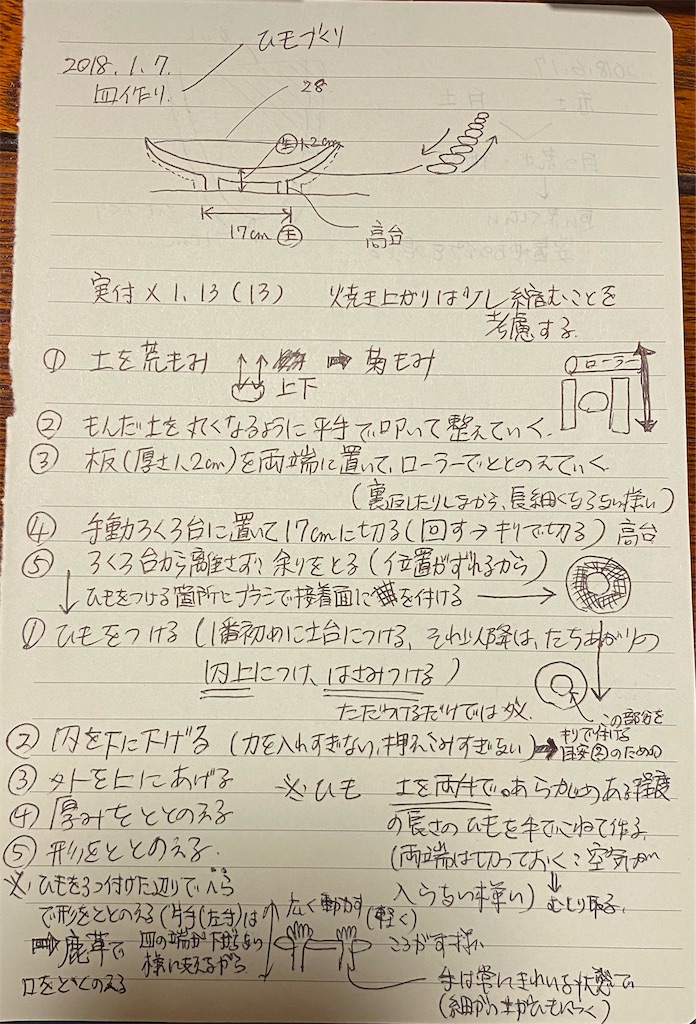 ひもづくり
2018.1.7.
皿作り.
28
生 1.2cm
17cm 生
高台
実寸×1.13(13) 焼き上がりは少し縮むことを
考慮する.
① 土を荒もみ ➡ 菊もみ
上下
ローラー
② もんだ土を丸くなるように平手で叩いて整えていく.
③ 板(厚さ1.2cm)を両端に置いて、ローラーでととのえていく
(裏返したりしながら、長細くならない様に)
④ 手動ろくろ台に置いて17cmに切る(回す→キリで切る)高台
⑤ ろくろ台から離さず?余りをとる(位置がずれるから)
↓ ひもをつける箇所にブラシで接着面に#を付ける →
① ひもをつける(1番初めに土台につける、それ以降は、たちあがりの
内上につけ、はさみつける)
ただつけるだけでは×.
この部分を
キリで付ける
目安②のための
② 内を下に下げる(力を入れすぎない、押えこみすぎない)➡
③ 外を上にあげる
④ 厚みをととのえる
⑤ 形をととのえる.
※ひも 土を両手で。あらかじめある程度
の長さのひもを手でこねて作る.
(両端は切っておく:空気が
入らない様に) むしり取る.
※ひもを3つ付けた辺りでヘラ
で形をととのえる(片手(左手)は
皿の端が下がらない
様に支えながら
➡鹿革で
口をととのえる
広く動かす(軽く)
ころがす様に
手は常にきれいな状態で
(細かい土がひもにつく)